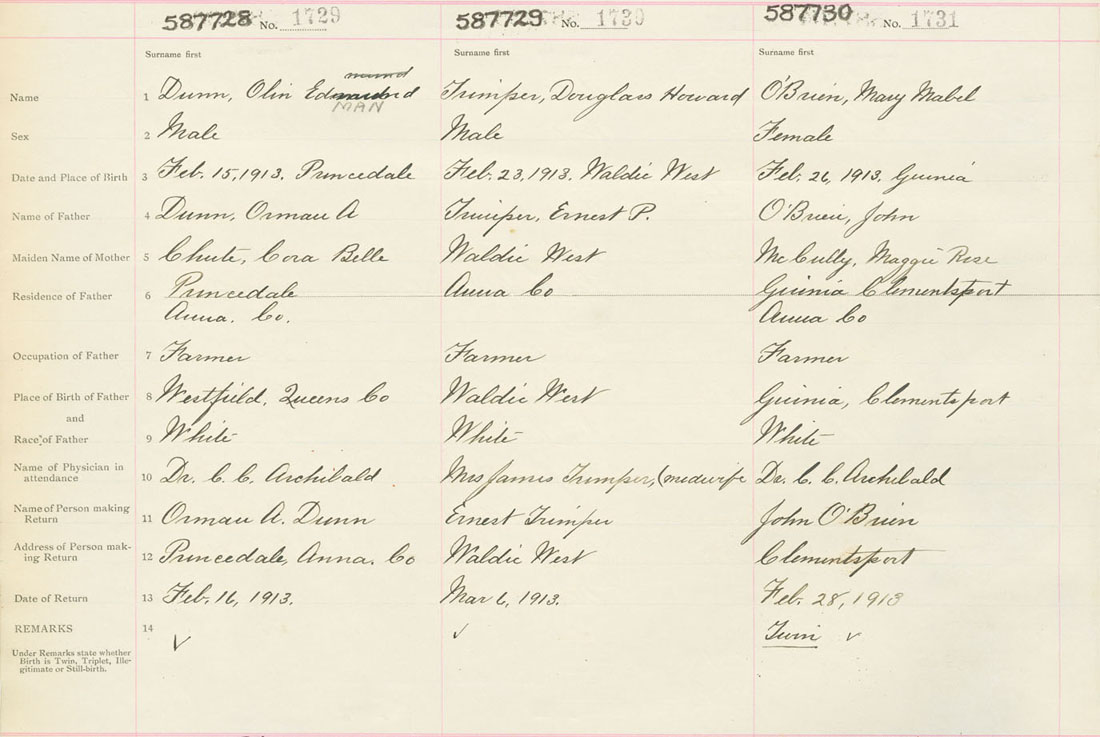 587728 No. 1729 587729 No. 1730 587730 No. 1731
Surname first Surname first Surname first
Name 1 Dunn, Olin Edmund MAN Trimper, Douglass Howard O'Brien, Mary Mabel
Sex 2 Male Male Female
Date and Place of Birth 3 Feb. 15, 1913. Princedale Feb. 23, 1913. Waldic West Feb. 26, 1913, Guinia
Name of Father 4 Dunn, Orman A Trimper, Ernest P. O'Brien, John
Maiden Name of Mother 5 Chute, Cora Belle Waldic West McCully, Maggie Rose
Residence of Father 6 Princedale Anna Co Guinia Clementsport
Anna. Co. Anna Co
Occupation of Father 7 Farmer Farmer Farmer
Place of Birth of Father 8 Westfield, Queens Co Waldic West Guinia, Clementsport
and
Race of Father 9 White White White
Name of Physician in attendance 10 Dr. C. C. Archibald Mrs James Trimper, (midwife Dr. C. C. Archibald
Name of Person making Return 11 Orman A. Dunn Ernest Trimper John O'Brien
Address of Person making Return 12 Princedale, Anna. Co Waldic West Clementsport
Date of Return 13 Feb. 16, 1913. Mar 6, 1913. Feb. 28, 1913
REMARKS 14 Twin
Under Remarks state whether
Birth is Twin, Triplet, Ille-
gitimate or Still-birth.